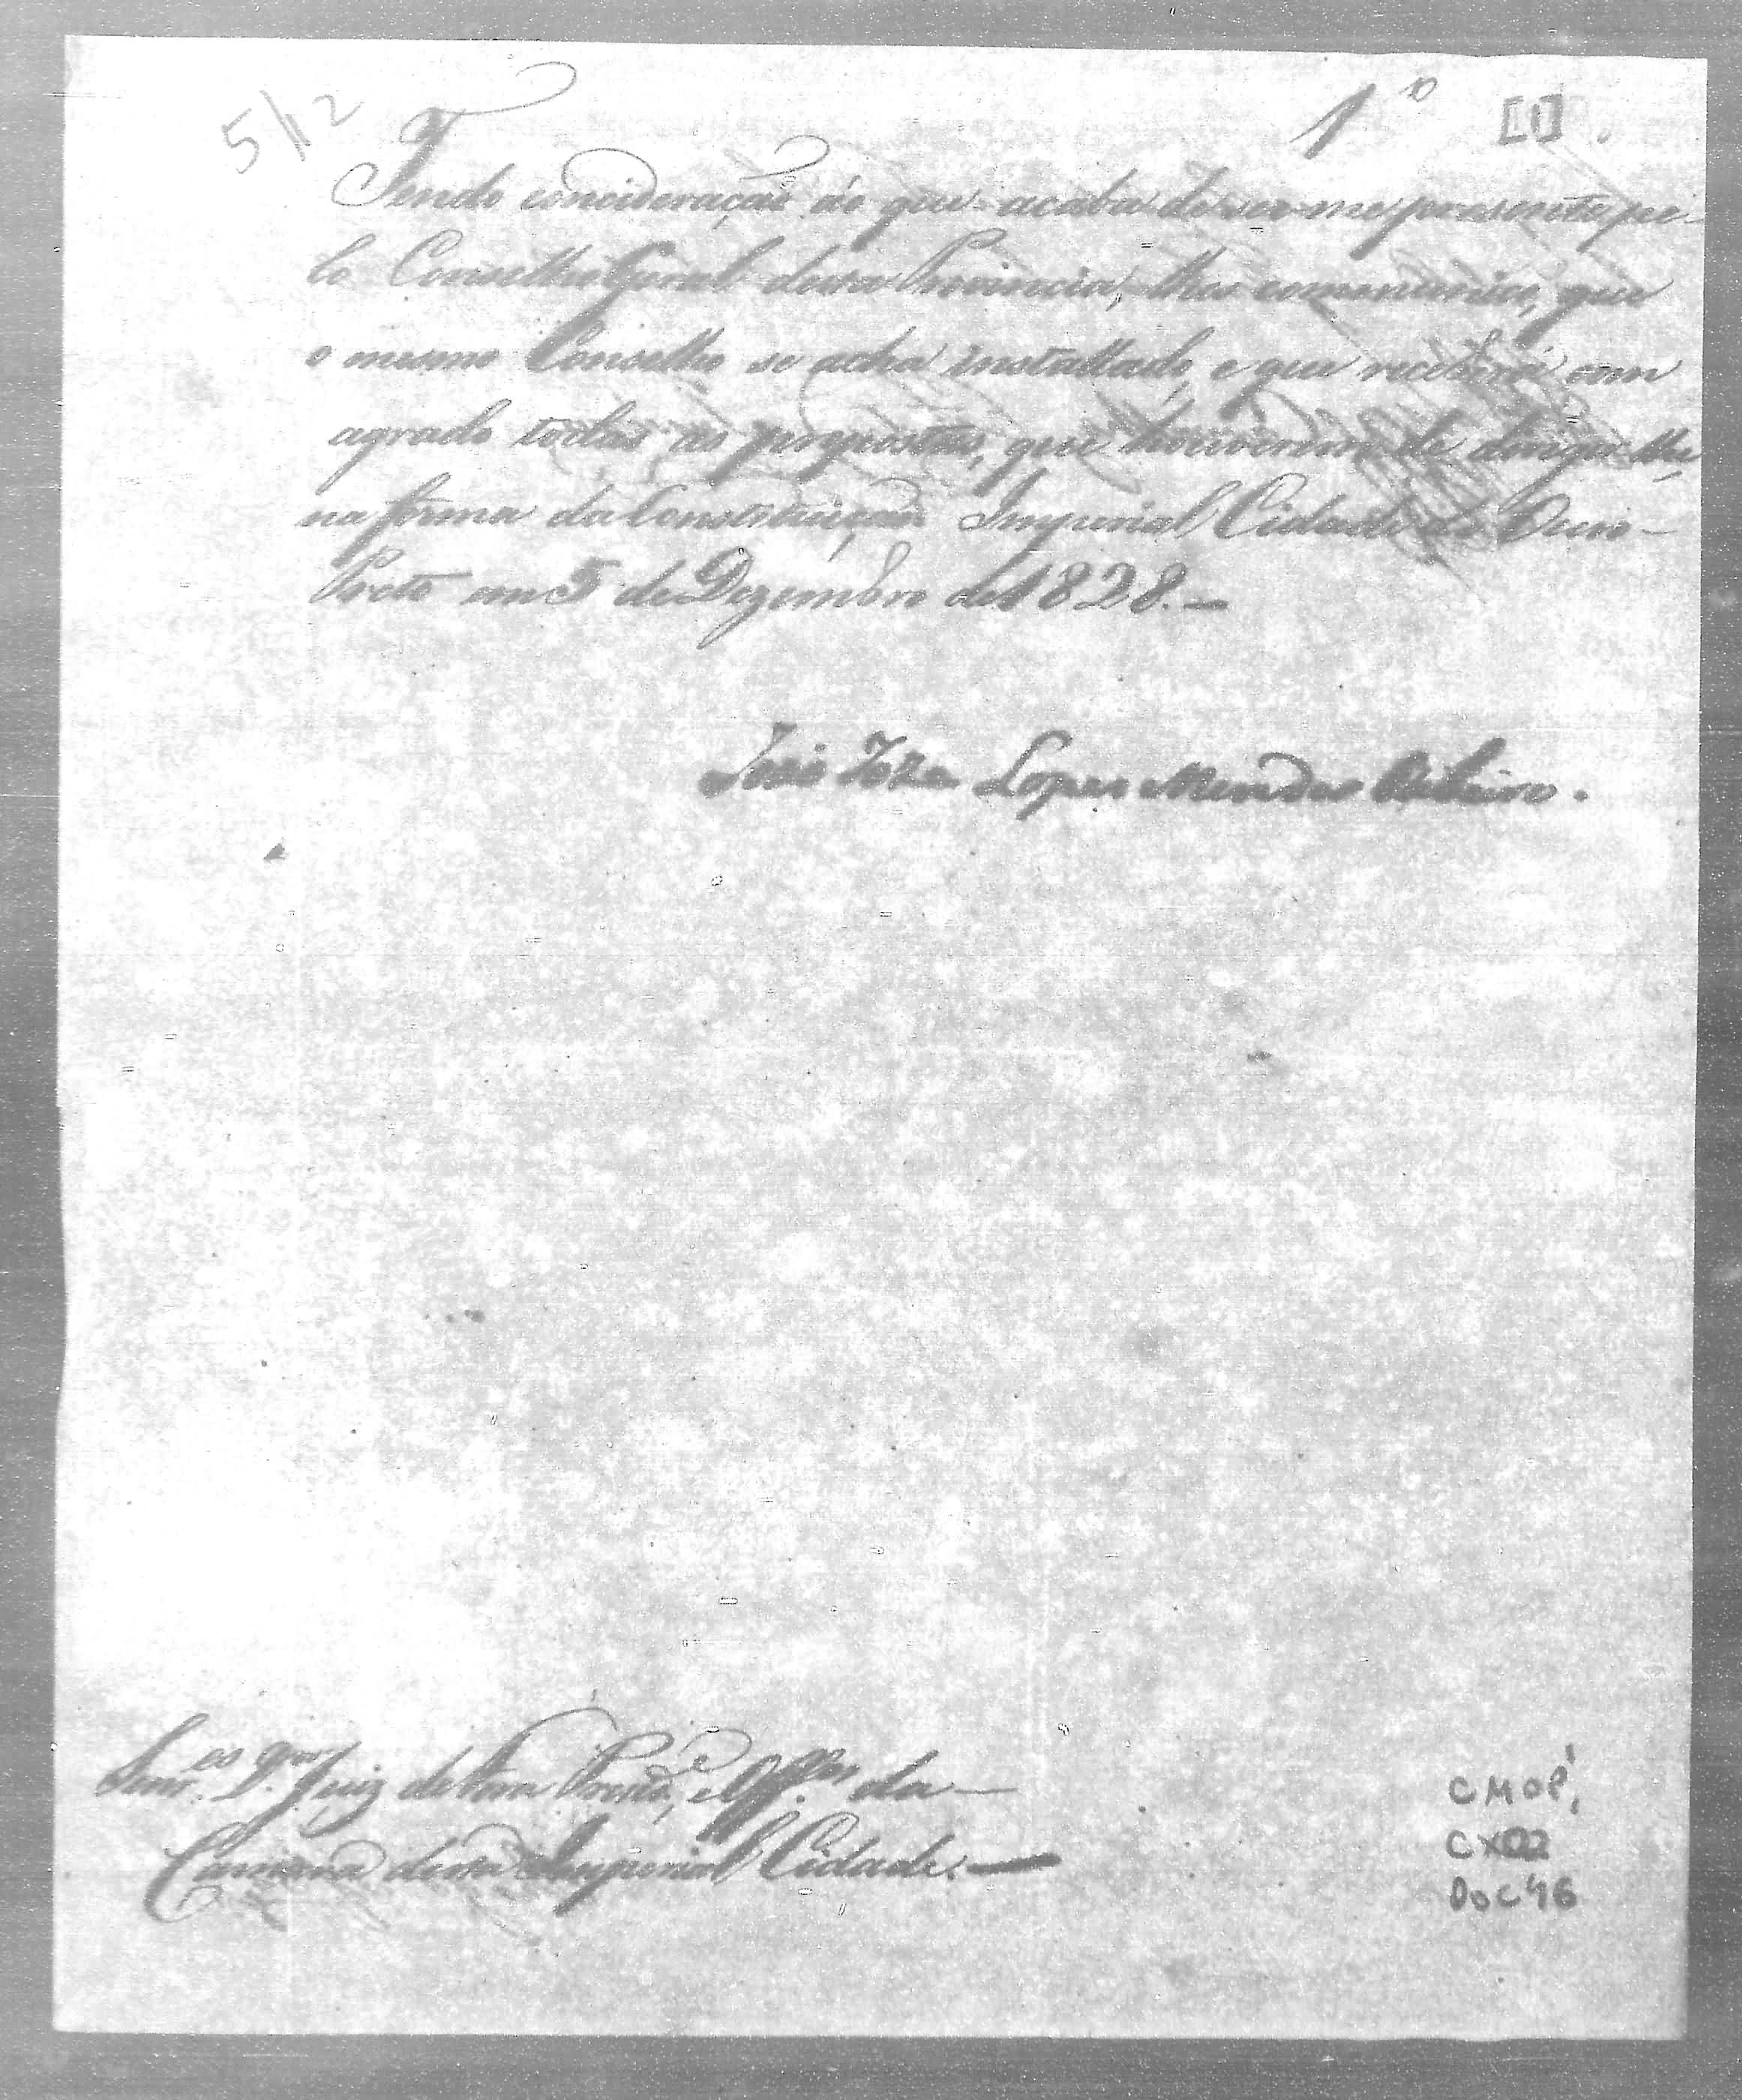 5/12
1º [1].
Tendo consideração áo que acaba de ser-me presente pe-
lo Conselho Geral desta Provincia, lhes communico, que
o mesmo Conselho se acha installado, e que receberá com
agrado todas as propostas, que houverem de dirigir-lhe
na forma da Constituição. Imperial Cidade do Ouro-
Preto em 5 de Dezembro de 1828.—
João Joze Lopes Mendes Ribeiro.
Senr.es D.or Juiz de Fora Prezid.e, e Off.es da—
Camara desta Imperial Cidade.—
CMOP,
CX02
DOC46